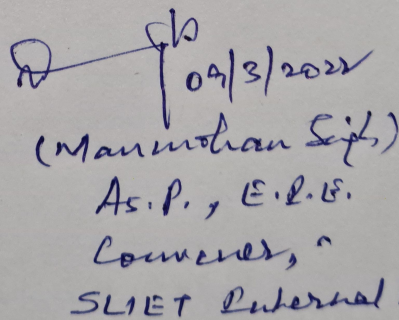 09/3/2022
(Manmohan Singh)
As.P., E.C.E.
Convener,
SLIET Internal